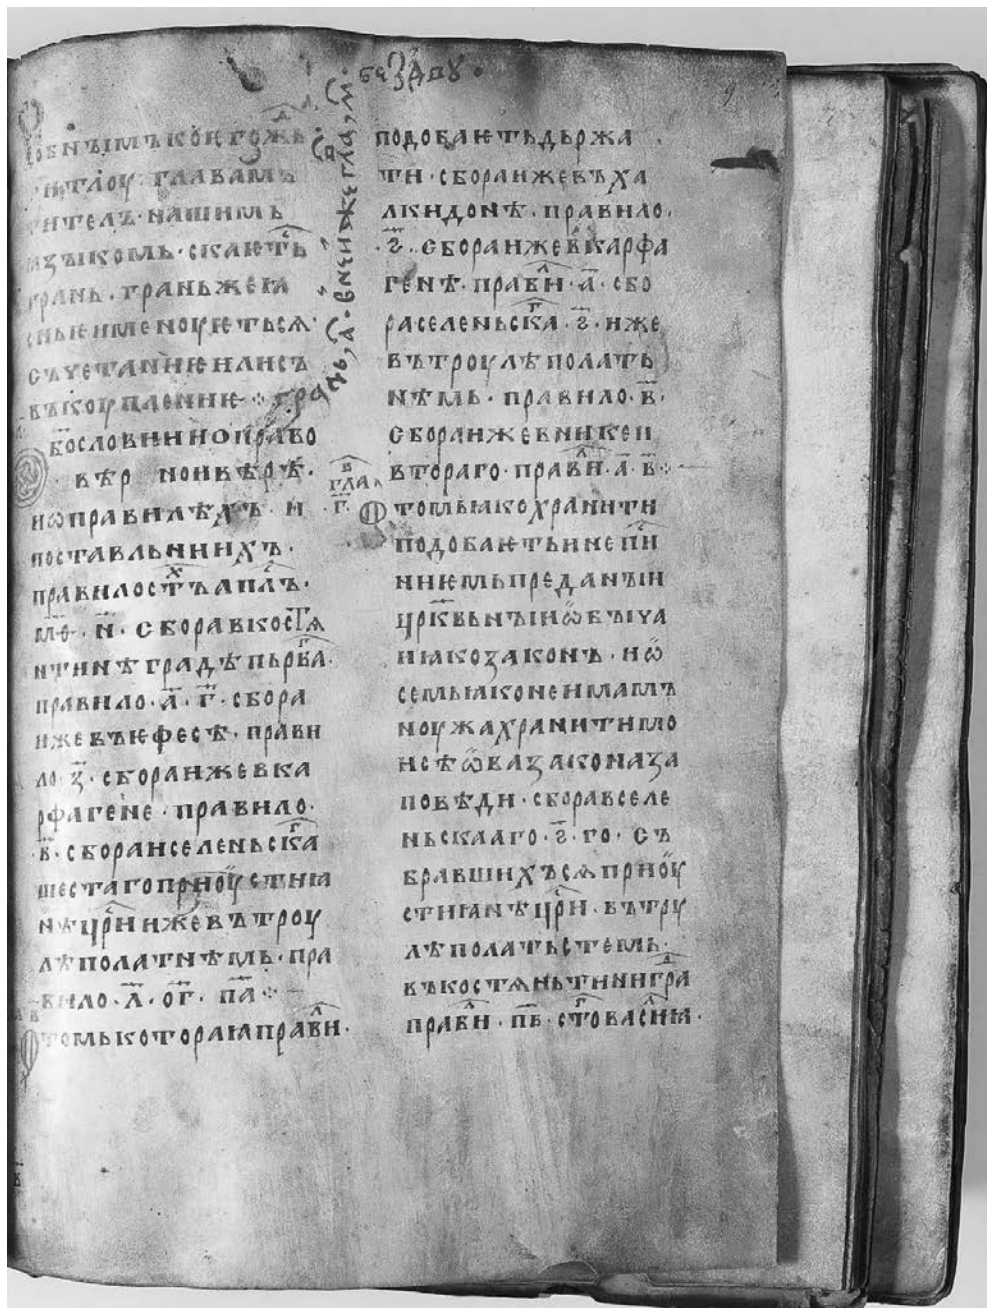 обнъімъкоѥгожь
титлоу главамъ
нашимь
ꙗзъікомь · скаѥть
грань · граньжеіꙗ
именоуѥтьсѧ ·
съчетаниѥилисъ
въкоуплениѥ ·
бословииноправо
вѣр ноивѣрѣ ·
иѡправилѣхъ · и
поставльнихъ ·
правилостъапл҃ъ ·
н҃ · сборавкостѧ
нтинѣградѣпьрва ·
правило · а҃ · г҃ · сбора
ижевъѥфесѣ · прави
ло · з҃ · сбораижевка
рфагене · правило ·
в҃ · сбораиселеньска
шестагоприоустиіа
нѣцр҃иижевътроу
лѣполатнѣмь · пра
вило · л҃ · ог҃ · па҃
томькотораꙗправи ·
подобаѥтьдьржа
ти · сбораижевъха
лкидонѣ · правило ·
г҃ · сбораижевкарфа
генѣ · прави · а҃ · сбо
раселеньска · ѕ҃ · иже
вътроулѣполать
нѣмь · правило · в҃ ·
сбораижевникеи
втораго · прави · а҃ · в҃
гла
г҃ ·
Ѡтомьꙗкохранити
подобаѥтьинепи
ниѥмьпреданъіи
цр҃квьнъіиѡбъіча
иꙗкозаконъ · иѡ
семьꙗконеимамъ
ноужахранитимо
исѣѡвазаконаза
повѣди · сборавселе
ньскааго · ѕ҃ · го · съ
бравшихъсѧприоу
стиіанѣцр҃и · вътру
лѣполатьстемь ·
въкостѧньтинигра
прави · пв҃ · ст҃говасиіа ·